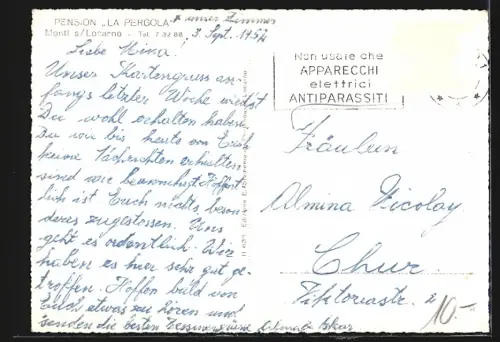 PENSION „LA PERGOLA“ * unser Zimmer
Monti s/Locarno - Tel. 7 32 88 3. Sept. 1957
Liebe Mina!
Unser Kartengruss an-
fangs letzter Woche wirst
Du wohl erhalten haben.
Da wir bis heute von Euch
keine Nachrichten erhalten
sind wir beunruhigt. Hoffent-
lich ist Euch nichts beson-
deres zugestossen. Uns
geht es ordentlich. Wir
haben es hier sehr gut ge-
troffen. Hoffen bald von
Euch etwas zu hören und
senden die besten Tessinergrüsse
Non usare che
APPARECCHI
elettrici
ANTIPARASSITI
Fräulein
Almina Nicolay
Chur
Viktoriastr. 2
10.-